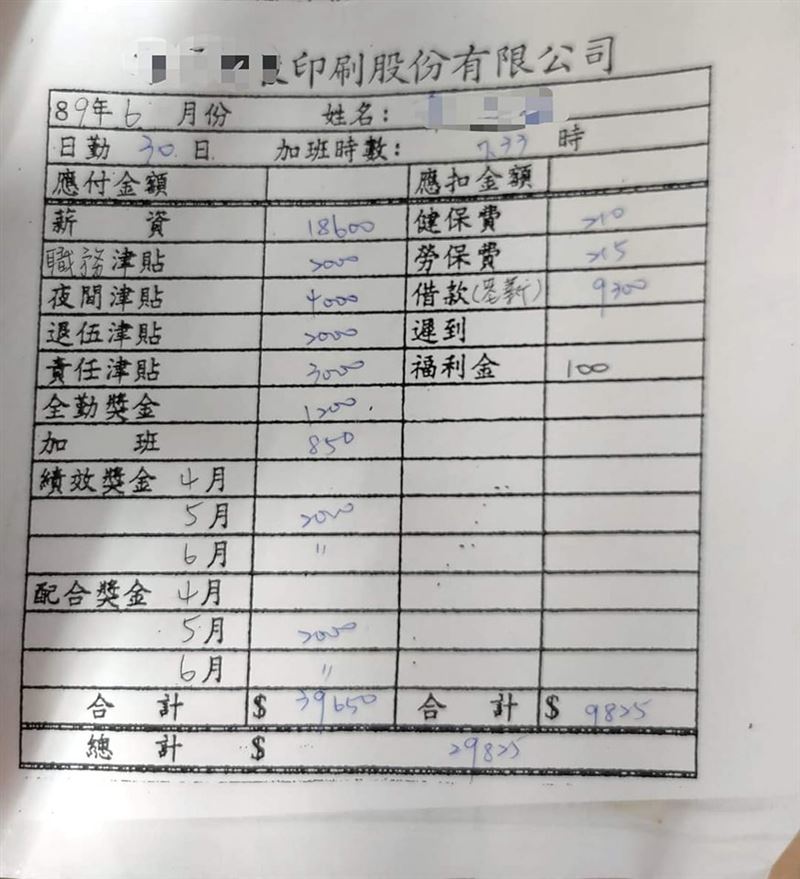 印刷股份有限公司
89年6月份 姓名:
日勤 30 日 加班時數: 7.33 時
應付金額 應扣金額
薪資 18600 健保費 210
職務津貼 2000 勞保費 215
夜間津貼 4000 借款(忍薪) 9300
退伍津貼 2000 遲到
責任津貼 3000 福利金 100
全勤獎金 1200
加班 850
績效獎金 4月
5月 2000
6月 〃
配合獎金 4月
5月 2000
6月 〃
合計 $ 39650 合計 $ 9825
總計 $ 29825